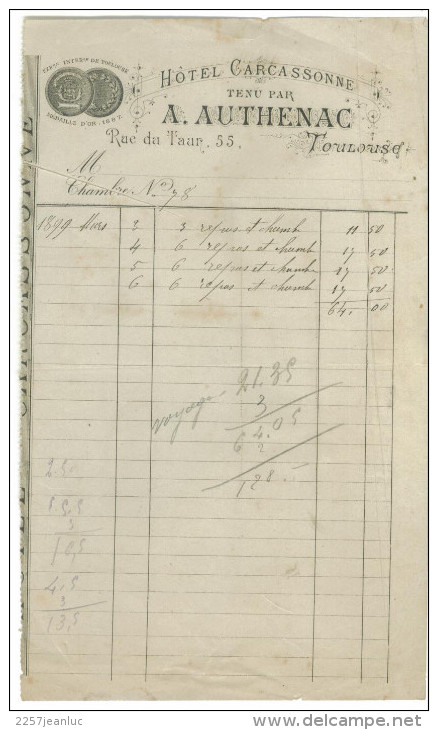 EXPon INTERle DE TOULOUSE
MÉDAILLE D'OR. 1887
HÔTEL CARCASSONNE
TENU PAR
A. AUTHENAC
Rue du Taur, 55, Toulouse
M
Chambre No 78
1899 Mars 3 3 repas et chamb 11 50
4 6 repas et chamb 17 50
5 6 repas et chamb 17 50
6 6 repas et chamb 17 50
64. 00
21.35
voyage 3
64.05
2
128.-
2.5
5.5
3
10,5
4.5
3
13,5
2257jeanluc
www.delcampe.net